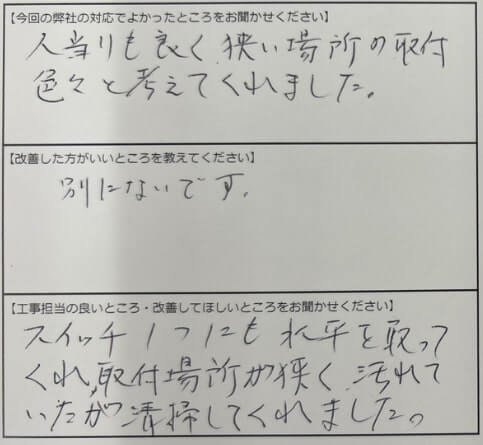 【今回の弊社の対応でよかったところをお聞かせください】
人当りも良く狭い場所の取付
色々と考えてくれました。
【改善した方がいいところを教えてください】
別にないです.
【工事担当の良いところ・改善してほしいところをお聞かせください】
スイッチ1つにも水平を取って
くれ,取付場所が狭く汚れて
いたが清掃してくれました。